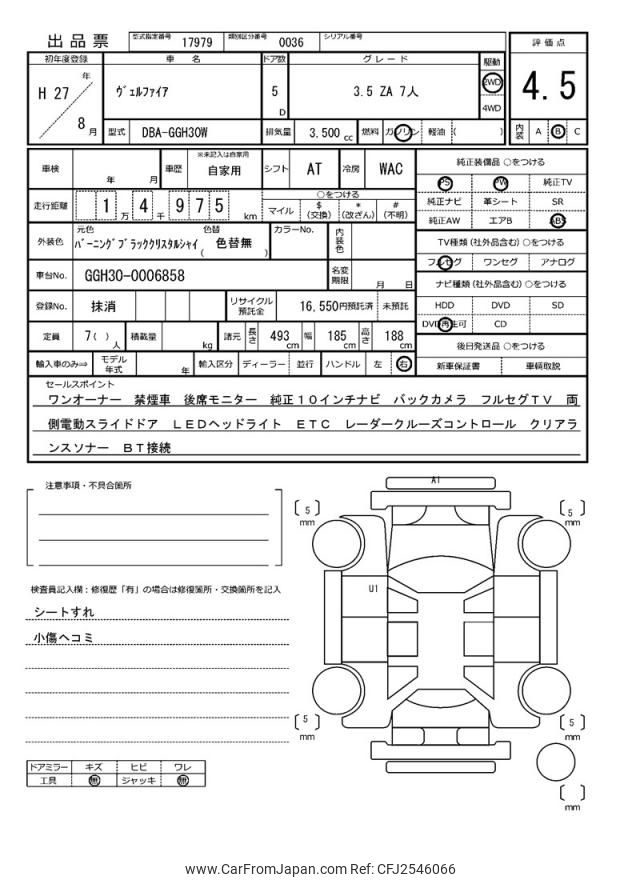 出品票 型式指定番号 17979 類別区分番号 0036 シリアル番号
初年度登録 車名 ドア数 グレード 駆動 評価点
H 27 年 8 月 ヴェルファイア 5 D 3.5 ZA 7人 2WD 4WD 4.5
型式 DBA-GGH30W 排気量 3,500 cc 燃料 ガソリン 軽油 ( ) 内装 A B C
車検 年 月 車歴 ※未記入は自家用 自家用 シフト AT 冷房 WAC
走行距離 1 万 4 千 9 7 5 km ○をつける
マイル $ (交換) * (改ざん) # (不明)
外装色 元色 バーニングブラッククリスタルシャイ 色替 ( 色替無 ) カラーNo. 内装色
車台No. GGH30-0006858 名変期限 月 日
登録No. 抹消 リサイクル預託金 16,550円預託済 未預託
定員 7( ) 人 積載量 kg 諸元 長さ 493 cm 幅 185 cm 高さ 188 cm
輸入車のみ⇒ モデル年式 年 輸入区分 ディーラー 並行 ハンドル 左 右
純正装備品 ○をつける
PS PW 純正TV
純正ナビ 革シート SR
純正AW エアB ABS
TV種類 (社外品含む) ○をつける
フルセグ ワンセグ アナログ
ナビ種類 (社外品含む) ○をつける
HDD DVD SD
DVD再生可 CD
後日発送品 ○をつける
新車保証書 車輌取説
セールスポイント
ワンオーナー 禁煙車 後席モニター 純正10インチナビ バックカメラ フルセグTV 両
側電動スライドドア LEDヘッドライト ETC レーダークルーズコントロール クリアラ
ンスソナー BT接続
注意事項・不具合箇所
検査員記入欄:修復歴「有」の場合は修復箇所・交換箇所を記入
シートすれ
小傷ヘコミ
ドアミラー キズ ヒビ ワレ
工具 無 ジャッキ 無
A1
[ 5 ] mm [ 5 ] mm
U1
[ 5 ] mm [ 5 ] mm
[ ] mm
www.CarFromJapan.com Ref: CFJ2546066